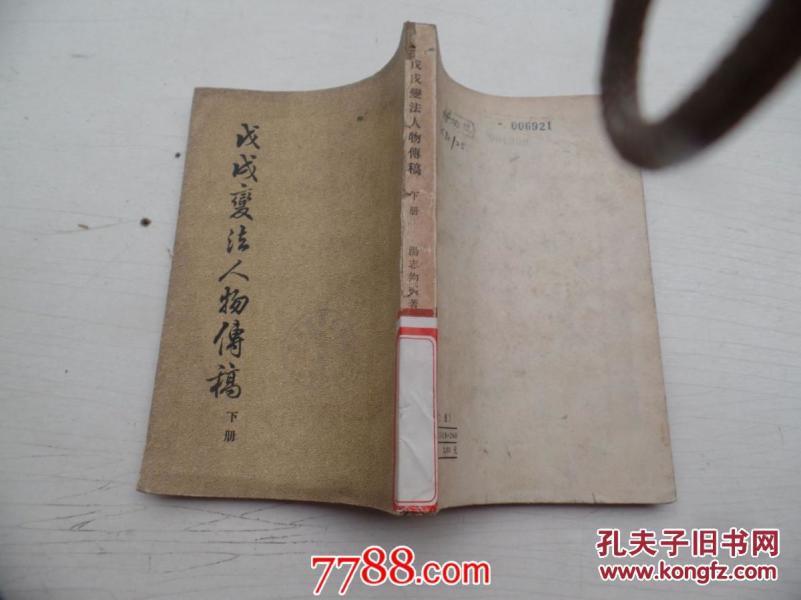 戊戌變法人物傳稿
下册
戊戌變法人物傳稿 下册
湯志鈞 著
006921
7788.com
孔夫子旧书网
www.kongfz.com